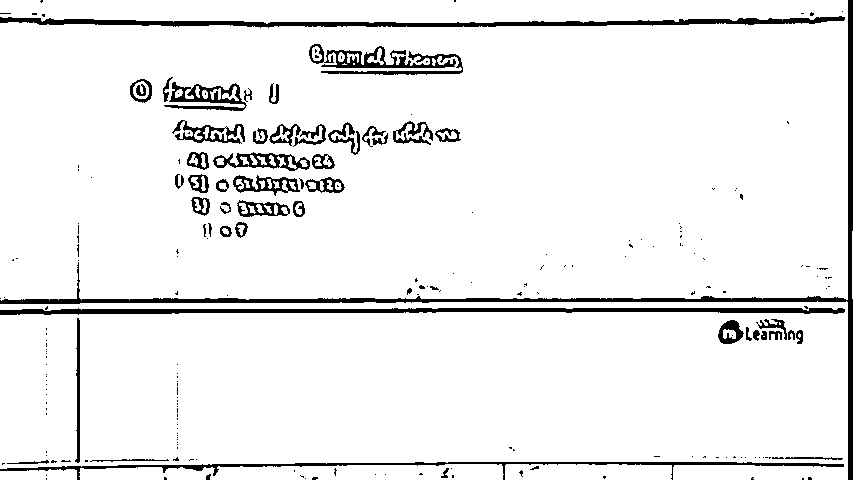 Binomial Theorem
① factorial : !
factorial is defined only for whole no
4! = 4x3x2x1 = 24
5! = 5x4x3x2x1 = 120
3! = 3x2x1 = 6
Learning